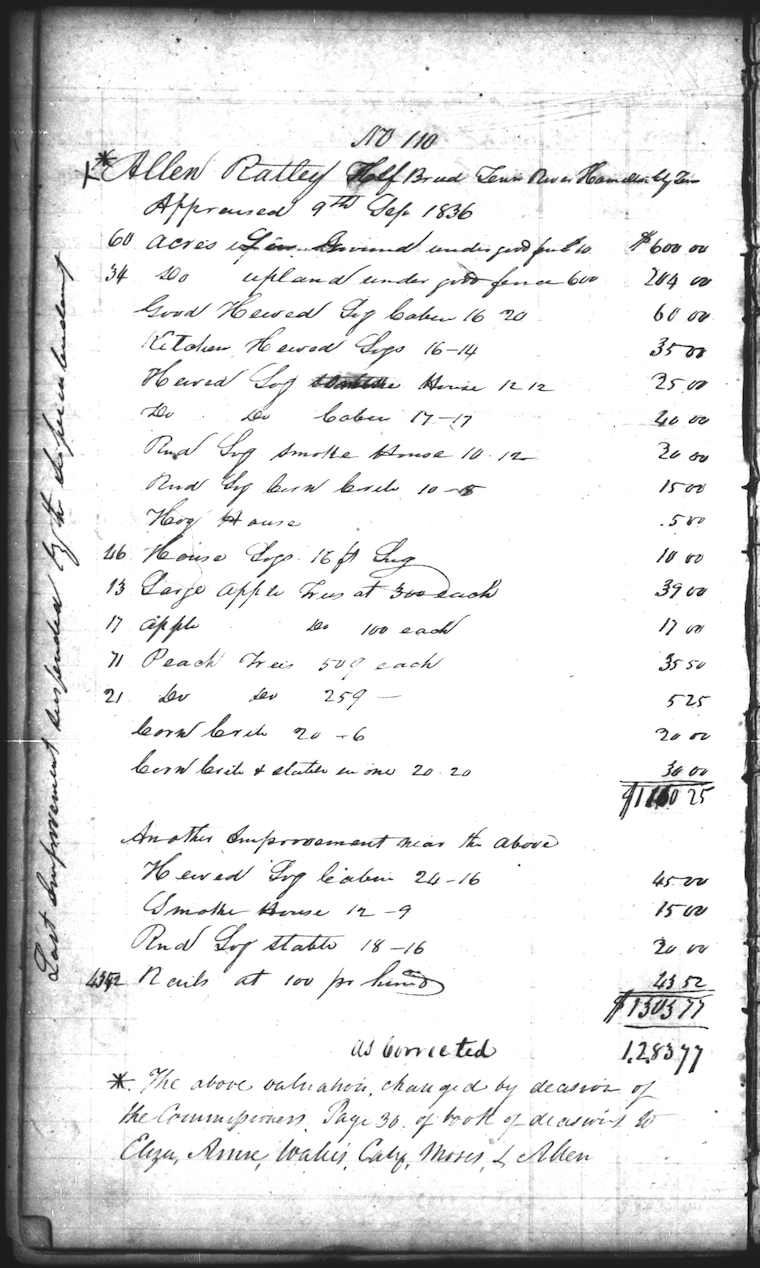 No 110
* Allen Ratley Half Breed Tenn River Hamilton Cty Ten
Appraised 9th Sep 1836
60 acres Ground under good fence 10 $600 00
34 Do upland under good fence 600 204 00
Good Hewed Log Cabin 16 20 60 00
Kitchen Hewed Logs 16-14 35 00
Hewed Log House 12 12 25 00
Do Do Cabin 17-17 40 00
Rnd Log Smoke House 10-12 20 00
Rnd Log Corn Crib 10-8 15 00
Hog House 5 00
46 House Logs 16 ft Lng 10 00
13 Large apple Trees at 300 each 39 00
17 apple Do 100 each 17 00
71 Peach Trees 50¢ each 35 50
21 Do Do 25¢ — 5 25
Corn Crib 20-6 20 00
Corn Crib & stable in one 20 20 30 00
$1160 25
Another Improvement near the above
Hewed Log Cabin 24-16 45 00
Smoke House 12-9 15 00
Rnd Log stable 18-16 20 00
4352 Rails at 100 pr hund 43 52
$1303 77
as Corrected 1,283 77
* The above valuation, changed by decision of
the Commissioners. Page 30. of book of decisions to
Eliza, Anne, Wallis, Caty, Moses, & Allen
Last Improvement suspended by the Superintendent